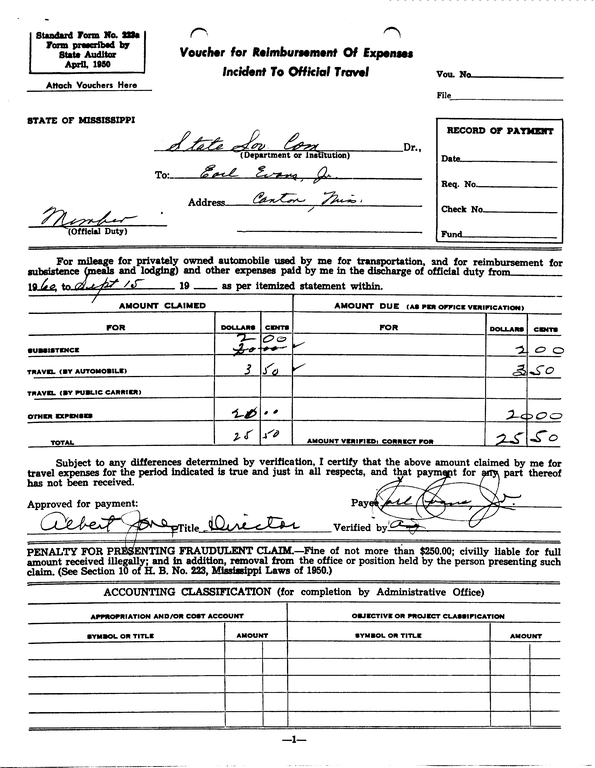 Standard Form No. 223a
Form prescribed by
State Auditor
April, 1950
Attach Vouchers Here
Voucher for Reimbursement Of Expenses
Incident To Official Travel
Vou. No.
File
STATE OF MISSISSIPPI
RECORD OF PAYMENT
Date
Req. No.
Check No.
Fund
State Sov Com Dr.,
(Department or Institution)
To: Earl Evans, Jr.
Address Canton, Miss.
Member
(Official Duty)
For mileage for privately owned automobile used by me for transportation, and for reimbursement for
subsistence (meals and lodging) and other expenses paid by me in the discharge of official duty from
1960, to Sept 15 19 as per itemized statement within.
AMOUNT CLAIMED AMOUNT DUE (AS PER OFFICE VERIFICATION)
FOR DOLLARS CENTS FOR DOLLARS CENTS
SUBSISTENCE 2 00 2 00
TRAVEL (BY AUTOMOBILE) 3 50 3 50
TRAVEL (BY PUBLIC CARRIER)
OTHER EXPENSES 20 00 20 00
TOTAL 25 50 AMOUNT VERIFIED: CORRECT FOR 25 50
Subject to any differences determined by verification, I certify that the above amount claimed by me for
travel expenses for the period indicated is true and just in all respects, and that payment for any part thereof
has not been received.
Approved for payment: Payee Earl Evans, Jr.
Albert Jones Title Director Verified by
PENALTY FOR PRESENTING FRAUDULENT CLAIM.—Fine of not more than $250.00; civilly liable for full
amount received illegally; and in addition, removal from the office or position held by the person presenting such
claim. (See Section 10 of H. B. No. 223, Mississippi Laws of 1950.)
ACCOUNTING CLASSIFICATION (for completion by Administrative Office)
APPROPRIATION AND/OR COST ACCOUNT OBJECTIVE OR PROJECT CLASSIFICATION
SYMBOL OR TITLE AMOUNT SYMBOL OR TITLE AMOUNT
—1—